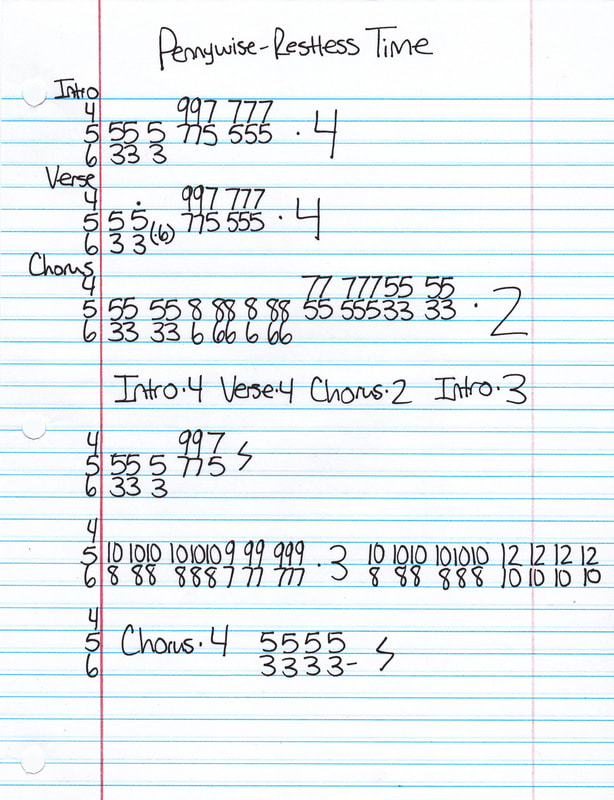 Pennywise-Restless Time
Intro
4 997 777
5 55 5 775 555 · 4
6 33 3
Verse
4 · 997 777
5 5 5 775 555 · 4
6 3 3 (·6)
Chorus
4 77 777 55 55
5 55 55 8 88 8 88 55 555 33 33 · 2
6 33 33 6 66 6 66
Intro·4 Verse·4 Chorus·2 Intro·3
4 99 7
5 55 5 77 5
6 33 3
4
5 10 1010 101010 9 99 999 · 3 10 1010 101010 12 12 12 12
6 8 88 888 7 77 777 8 88 888 10 10 10 10
4
5 Chorus·4 5555
6 3333-